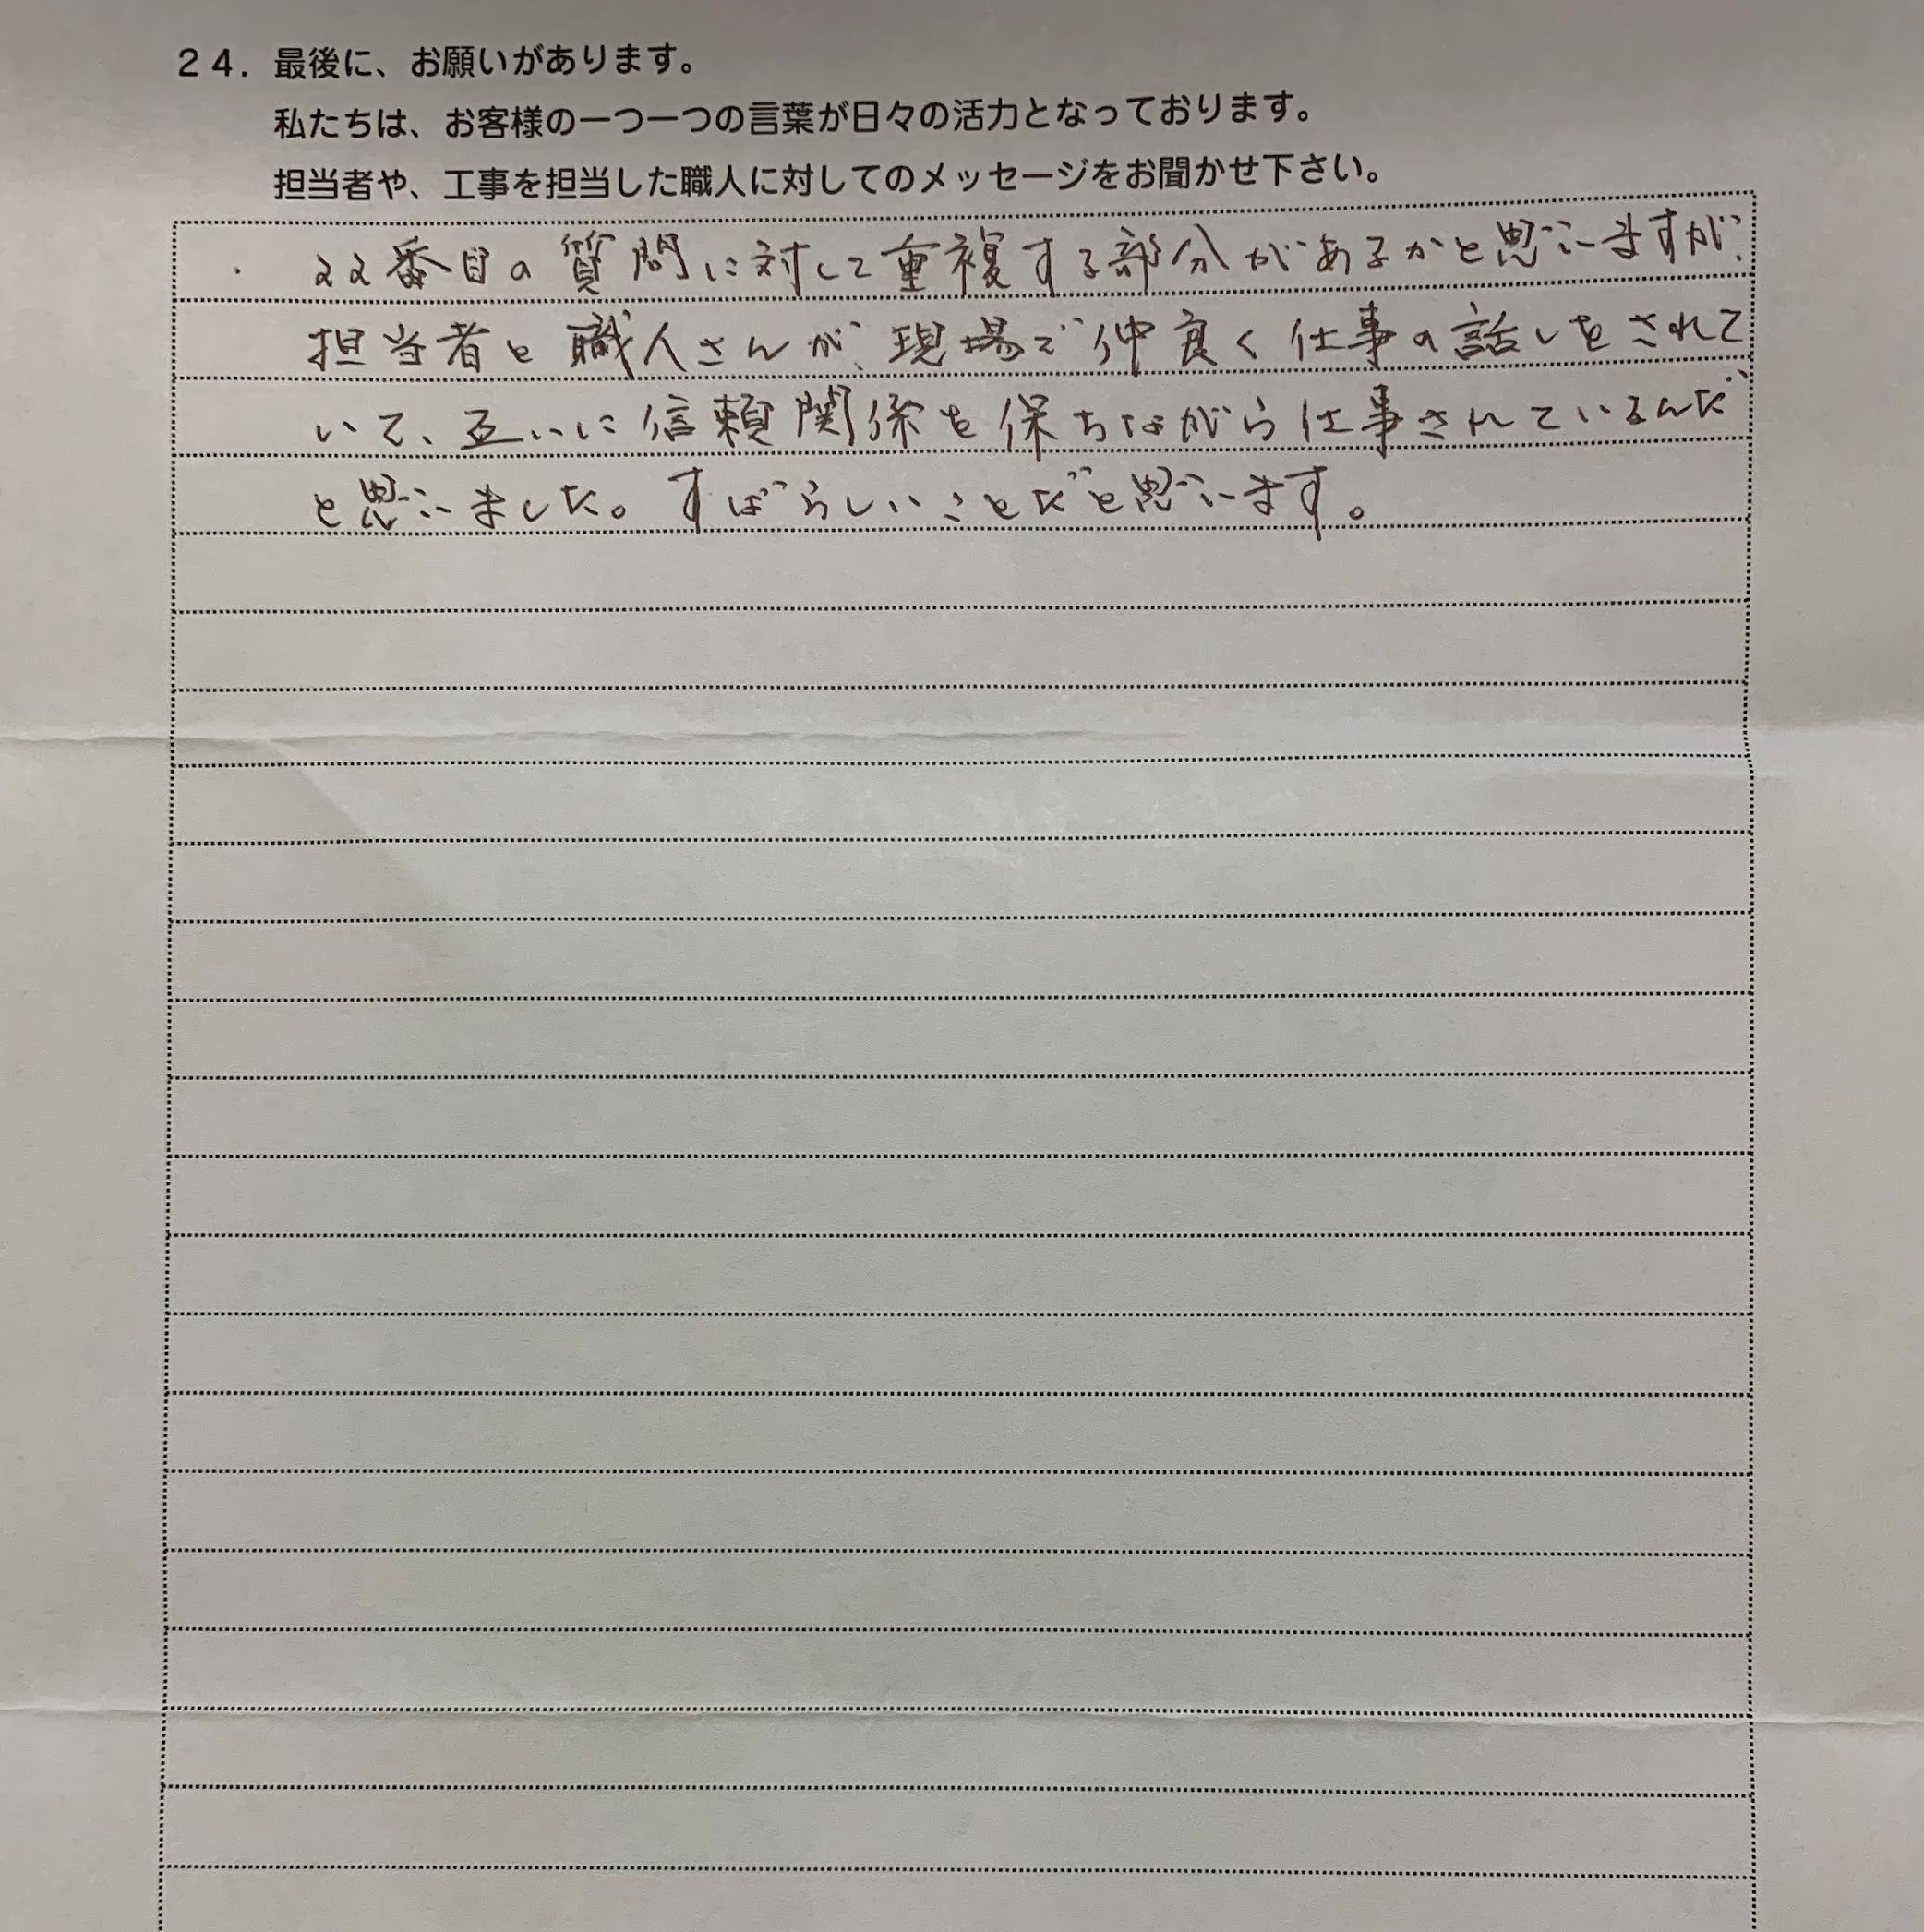 24. 最後に、お願いがあります。
私たちは、お客様の一つ一つの言葉が日々の活力となっております。
担当者や、工事を担当した職人に対してのメッセージをお聞かせ下さい。
・ 22番目の質問に対して重複する部分があるかと思いますが、
担当者と職人さんが、現場で仲良く仕事の話しをされて
いて、互いに信頼関係を保ちながら仕事されているんだ
と思いました。すばらしいことだと思います。